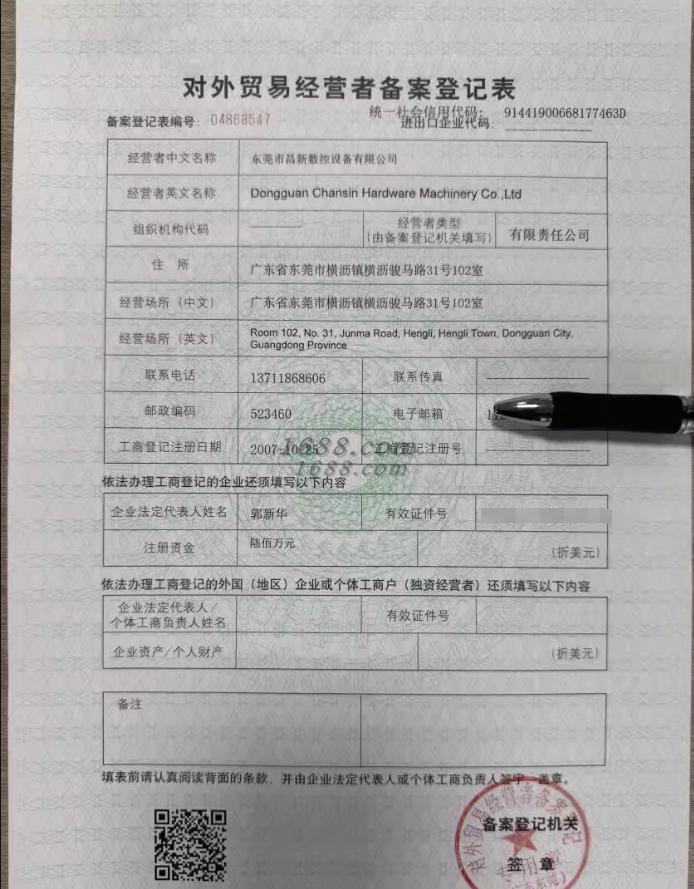 对外贸易经营者备案登记表
统一社会信用代码: 91441900668177463D
备案登记表编号: 04868547
进出口企业代码:
经营者中文名称 东莞市昌新数控设备有限公司
经营者英文名称 Dongguan Chansin Hardware Machinery Co.,Ltd
组织机构代码 经营者类型 (由备案登记机关填写) 有限责任公司
住 所 广东省东莞市横沥镇横沥骏马路31号102室
经营场所(中文) 广东省东莞市横沥镇横沥骏马路31号102室
经营场所(英文) Room 102, No. 31, Junma Road, Hengli, Hengli Town, Dongguan City,
Guangdong Province
联系电话 13711868606 联系传真
邮政编码 523460 电子邮箱
工商登记注册日期 2007-10-25 工商登记注册号
1688.com
1688.com
依法办理工商登记的企业还须填写以下内容
企业法定代表人姓名 郭新华 有效证件号
注册资金 陆佰万元 (折美元)
依法办理工商登记的外国(地区)企业或个体工商户(独资经营者)还须填写以下内容
企业法定代表人/
个体工商负责人姓名 有效证件号
企业资产/个人财产 (折美元)
备注
填表前请认真阅读背面的条款,并由企业法定代表人或个体工商负责人签字、盖章。
对外贸易经营者备案登记
备案登记机关
签 章
专用章